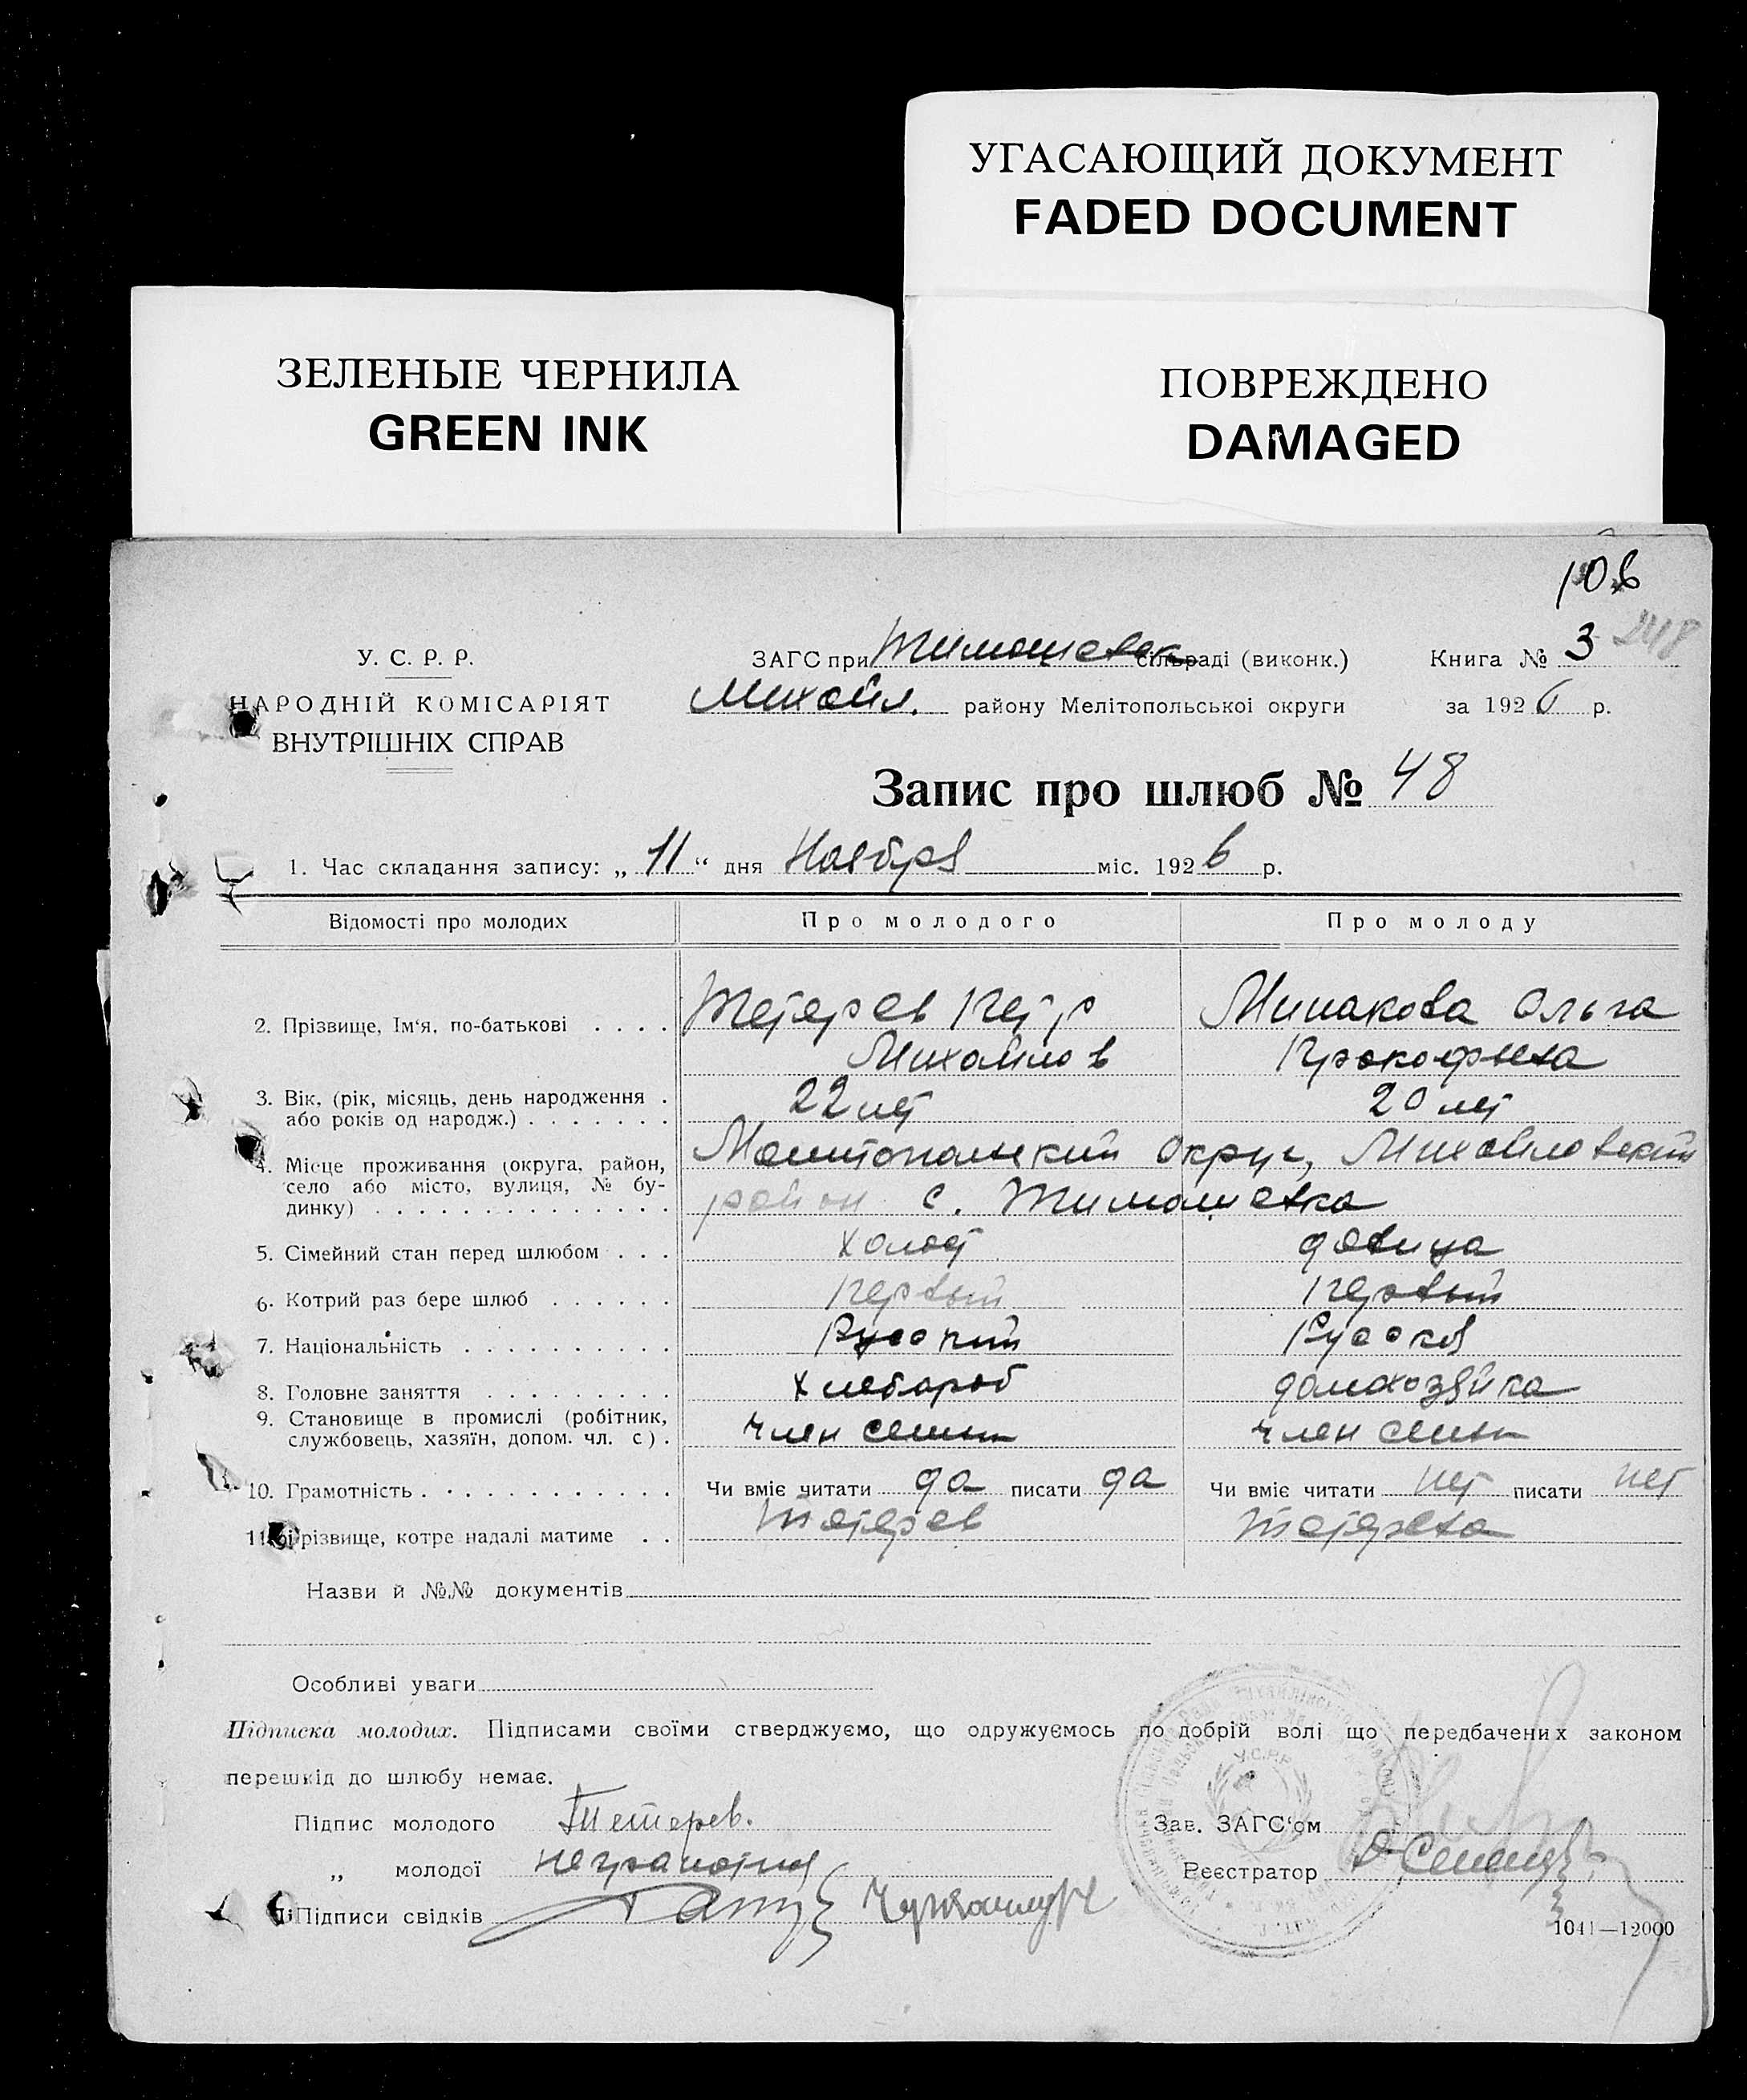 УГАСАЮЩИЙ ДОКУМЕНТ
FADED DOCUMENT
ЗЕЛЕНЫЕ ЧЕРНИЛА
GREEN INK
ПОВРЕЖДЕНО
DAMAGED
У. С. Р. Р.
НАРОДНІЙ КОМІСАРІЯТ
ВНУТРІШНІХ СПРАВ
ЗАГС при Тимошевск сільраді (виконк.) Книга № 3
Михайл. району Мелітопольської округи за 1926 р.
Запис про шлюб № 48
1. Час складання запису: „11“ дня Ноября міс. 1926 р.
Відомості про молодих Про молодого Про молоду
2. Прізвище, Ім‘я, по-батькові . . . . Тетерев Петр Минакова Ольга
Михайлов Прокофьева
3. Вік, (рік, місяць, день народження . 22 лет 20 лет
або років од народж.) . . . . . . .
4. Місце проживання (округа, район, Мелитопольский Округ, Михайловский
село або місто, вулиця, № бу-
динку) . . . . . . . . . . . . . . район с. Тимошевка
5. Сімейний стан перед шлюбом . . . Холост девица
6. Котрий раз бере шлюб . . . . . . Первый Первый
7. Національність . . . . . . . . . . Русский Русская
8. Головне заняття . . . . . . . . . Хлебороб домохозяйка
9. Становище в промислі (робітник, член семьи член семьи
службовець, хазяїн, допом. чл. с) .
10. Грамотність . . . . . . . . . . . . Чи вміє читати да писати да Чи вміє читати нет писати нет
11. Прізвище, котре надалі матиме . . Тетерев Тетерева
Назви й №№ документів
Особливі уваги
Підписка молодих. Підписами своїми стверджуємо, що одружуємось по добрій волі що передбачених законом
перешкід до шлюбу немає.
Підпис молодого Тетерев. Зав. ЗАГС‘ом
„ молодої неграмотная Реєстратор
Підписи свідків
У.С.Р.Р.
1041—12000